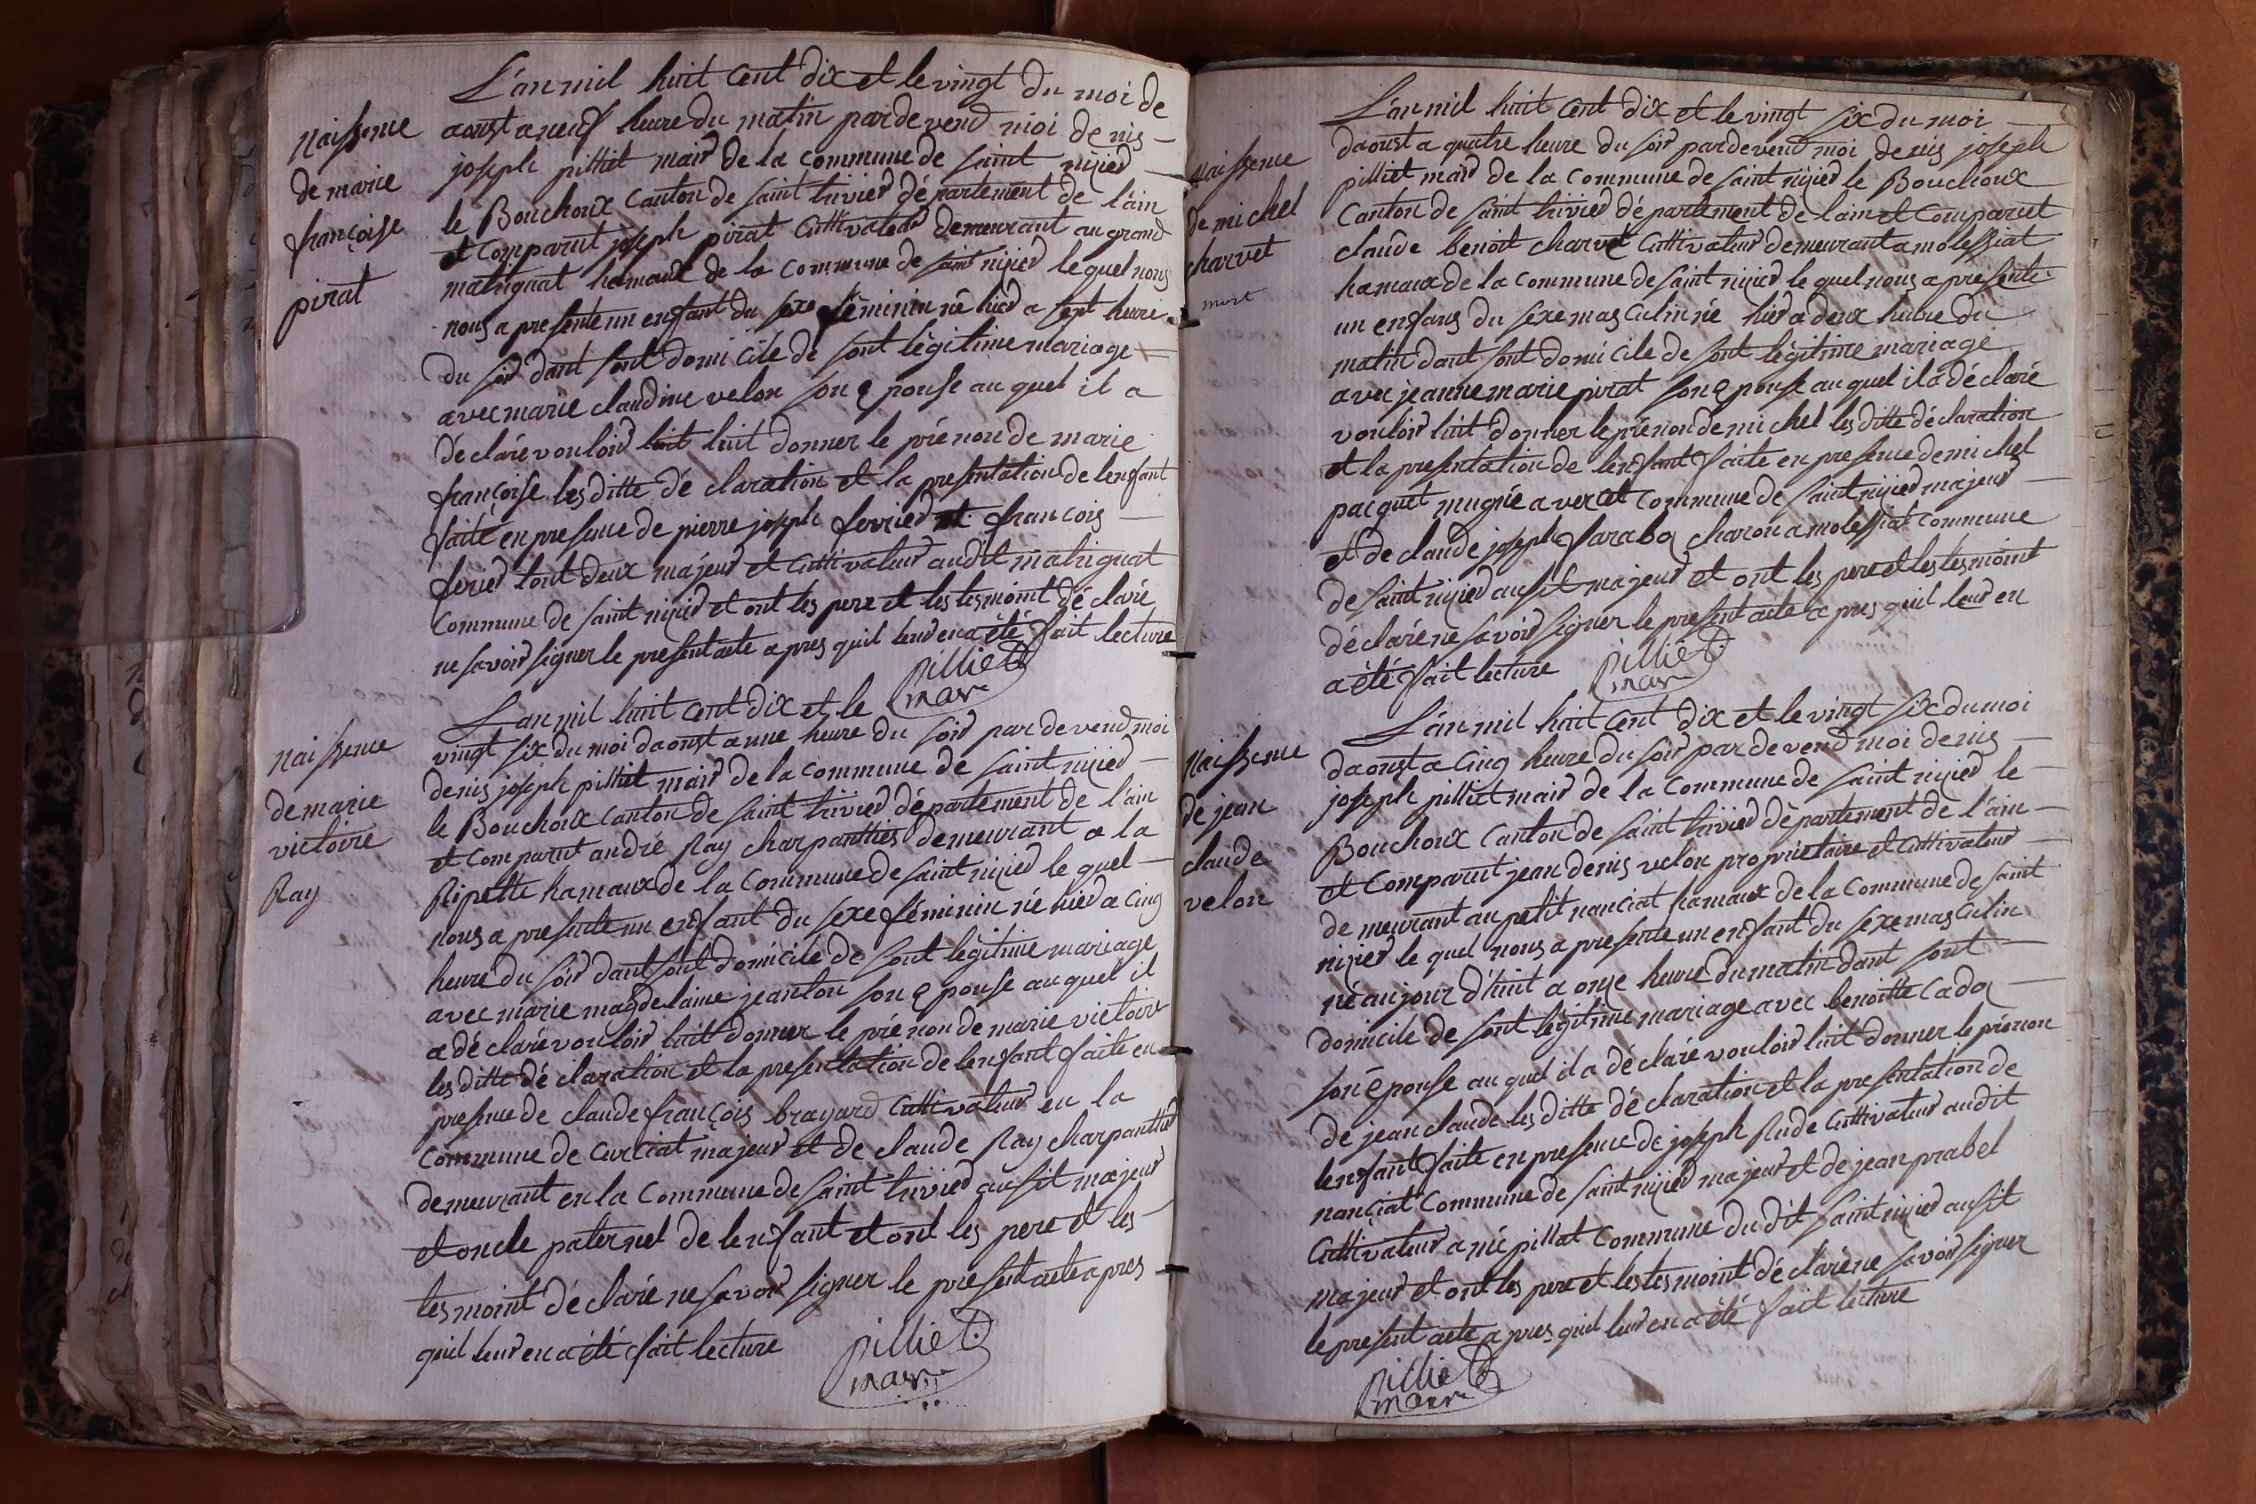 naissence
de marie
françoise
pirat
L'an mil huit cent dix et le vingt du moi de
aoust a neuf heure du matin pardevend moi denis
joseph pilliet mair de la commune de saint nizied
le Bouchoux canton de saint trivied département de l'ain
et comparut joseph pirat cultivateur demeurant au grand
matrignat hamaux de la commune de saint nizied le quel nous
nous a presente un enfant du sexe féminin né hied a sept heure
du soir dant sont domicile de sont légitime mariage
avec marie claudine velon son épouse au quel il a
déclaré vouloir luit luit donner le prénon de marie
françoise les ditte déclaration et la presentation de lenfant
faite en presence de pierre joseph ferried et francois
feried tout deux majeur et cultivateur audit matrignat
commune de saint nizied et ont les pere et les tesmoint déclaré
ne savoir signer le present acte apres quil leur en a été fait lecture
pilliet
mair
naissence
de marie
victoire
Ray
L'an mil huit cent dix et le
vingt six du moi daoust a une heure du soir pardevend moi
denis joseph pilliet mair de la commune de saint nizied
le Bouchoux canton de saint trivied département de l'ain
et comparut andré Ray charpanthied demeurant a la
Ripette hamaux de la commune de saint nizied le quel
nous a presente un enfant du sexe féminin né hied a cinq
heure du soir dant sont domicile de sont légitime mariage
avec marie magdelaine jeanton son épouse au quel il
a déclaré vouloir luit donner le prénon de marie victoire
les ditte déclaration et la presentation de lenfant faite en
presence de claude françois brayard cultivateur en la
commune de curciat majeur et de claude Ray charpanthied
demeurant en la commune de saint trivied ausit majeur
et oncle paternel de lenfant et ont les pere et les
tesmoint déclaré ne savoir signer le present acte apres
quil leur en a été fait lecture
pilliet
mair
naissence
de michel
charvet
mort
L'an mil huit cent dix et le vingt six du moi
daoust a quatre heure du soir pardevend moi denis joseph
pilliet mair de la commune de saint nizied le Bouchoux
canton de saint trivied département de lain et comparut
claude benoit charvet cultivateur demeurant a molessiat
hamaux de la commune de saint nizied le quel nous a presente
un enfans du sexe masculin né hied a deux heure du
matin dant sont domicile de sont légitime mariage
avec jeanne marie pirat son épouse au quel il a déclaré
vouloir luit donner le prénon de michel les ditte déclaration
et la presentation de lenfant faite en presence de michel
pacquet mugnié a vercet commune de saint nizied majeur
et de claude joseph charon a molessiat commune
de saint nizied ausit majeur et ont les pere et les tesmoint
déclaré ne savoir signer le present acte apres quil leur en
a été fait lecture
pilliet
mair
naissence
de jean
claude
velon
L'an mil huit cent dix et le vingt six du moi
daoust a cinq heure du soir pardevend moi denis
joseph pilliet mair de la commune de saint nizied le
Bouchoux canton de saint trivied département de l'ain
et comparut jean denis velon propriétaire et cultivateur
demeurant au petit nanciat hamaux de la commune de saint
nizied le quel nous a presente un enfant du sexe masculin
né aujour d'huit a onze heure du matin dant sont
domicile de sont légitime mariage avec benoitte
son épouse au quel il a déclaré vouloir luit donner le prénon
de jean claude les ditte déclaration et la presentation de
lenfant faite en presence de joseph Rude cultivateur audit
nanciat commune de saint nizied majeur et de jean prabel
cultivateur a commune du dit saint nizied ausit
majeur et ont les pere et les tesmoint déclaré ne savoir signer
le present acte apres quil leur en a été fait lecture
pilliet
mair